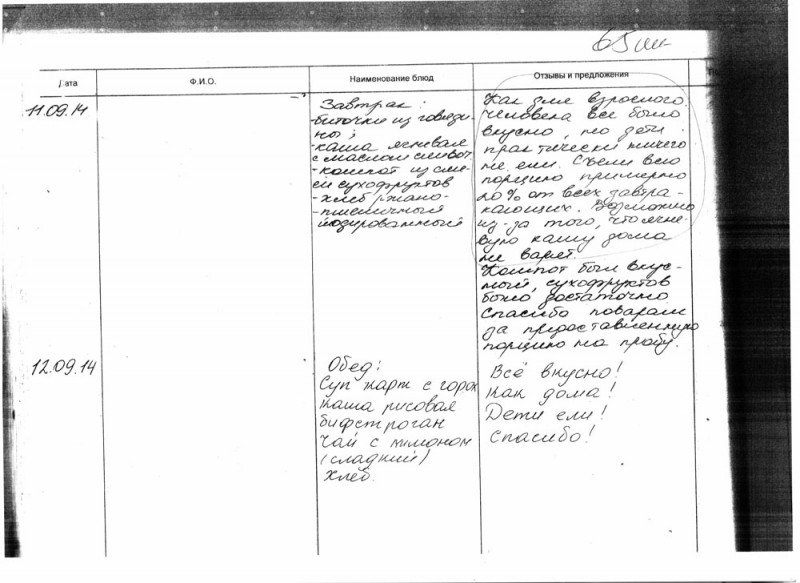 65 шк
Дата
Ф.И.О.
Наименование блюд
Отзывы и предложения
11.09.14
Завтрак:
-биточки из говяди-
ны;
-каша ячневая
с маслом сливоч.
-компот из сме-
си сухофруктов
-хлеб ржано-
-пшеничный
йодированный
Как для взрослого
человека все было
вкусно, но дети
практически ничего
не ели. Съели всю
порцию примерно
20% от всех завтра-
кающих. Возможно
из-за того, что ячне-
вую кашу дома
не варят.
Компот был вкус-
ный, сухофруктов
было достаточно
Спасибо поварам
за предоставленную
порцию на пробу.
12.09.14
Обед:
Суп карт с горох
Каша рисовая
бифстроган
Чай с лимоном
(сладкий)
Хлеб.
Всё вкусно!
Как дома!
Дети ели!
Спасибо!